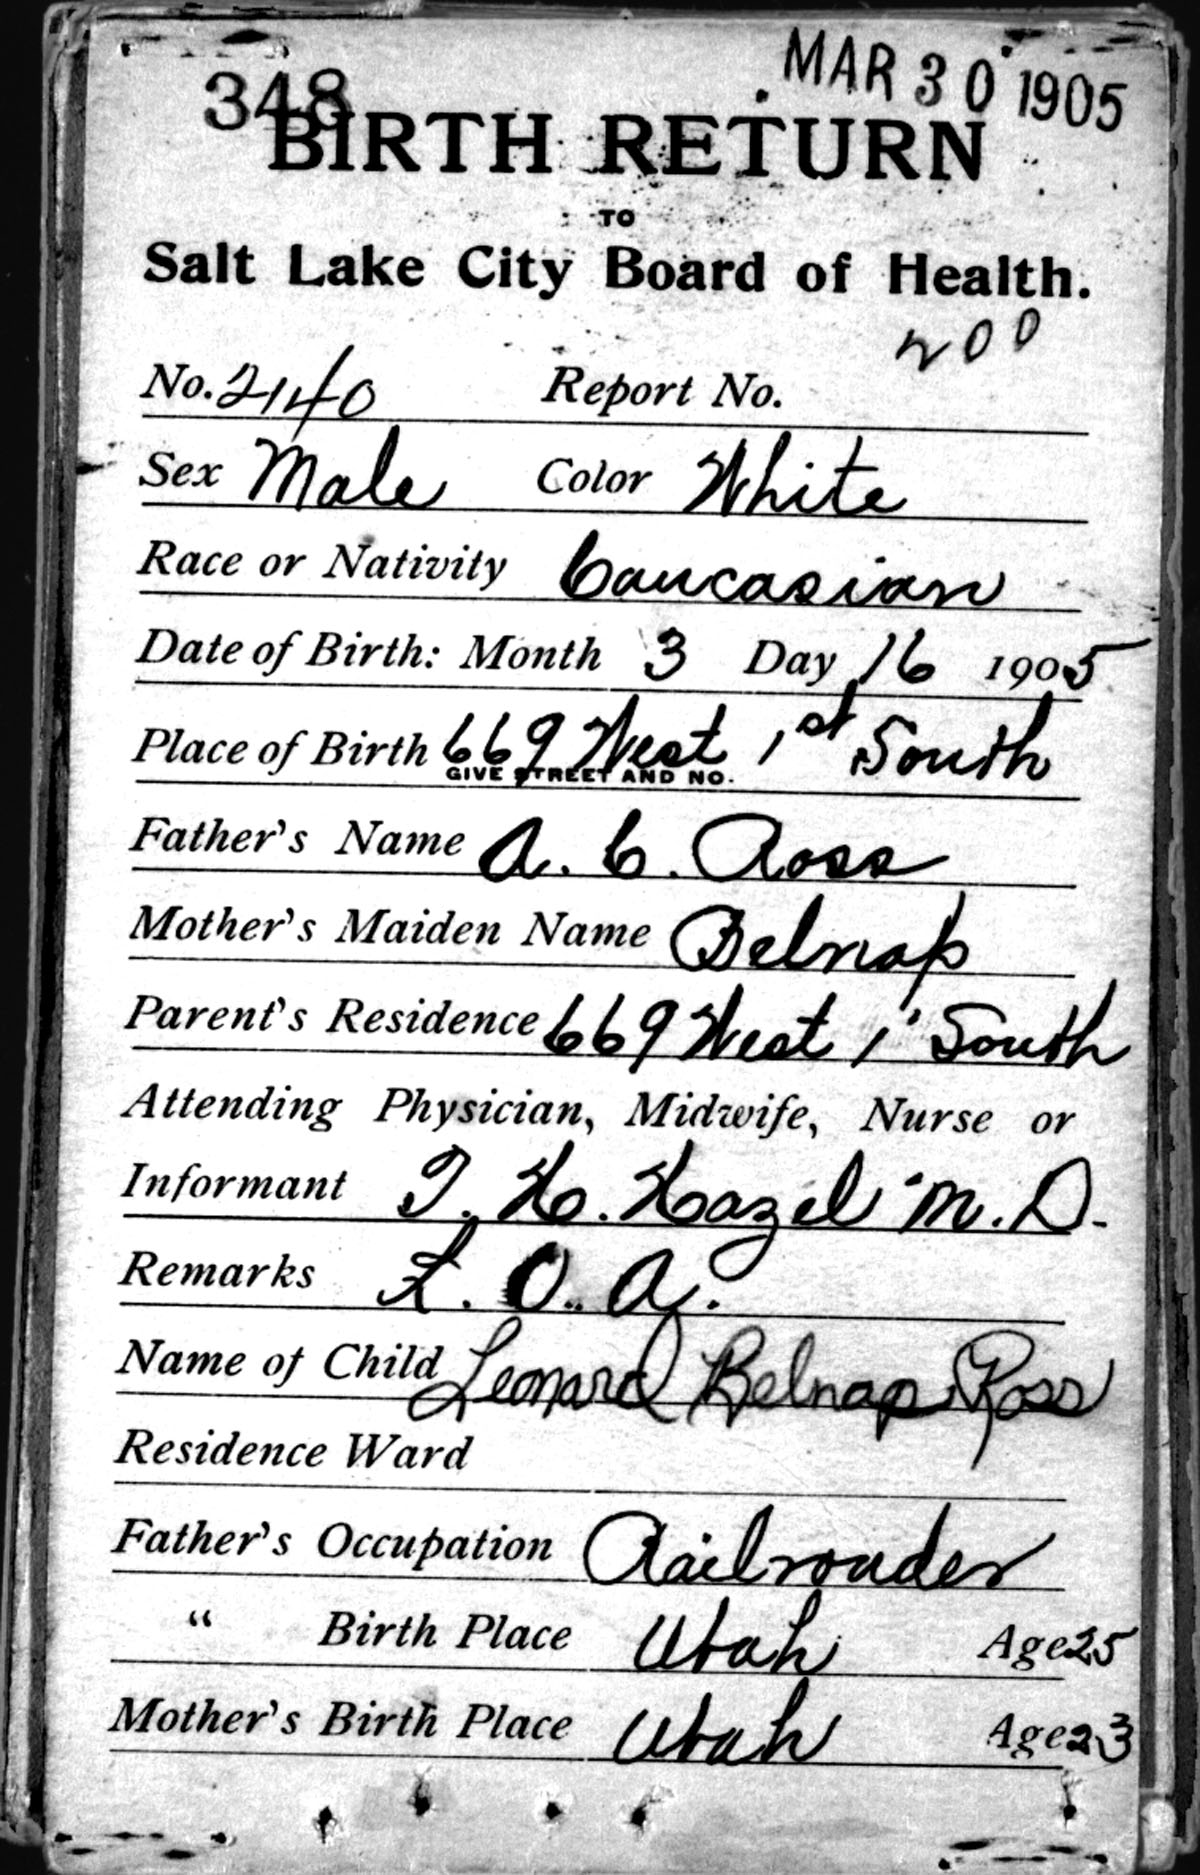 348 MAR 30 1905
BIRTH RETURN
TO
Salt Lake City Board of Health.
200
No. 2140 Report No.
Sex Male Color White
Race or Nativity Caucasian
Date of Birth: Month 3 Day 16 1905
Place of Birth 669 West 1st South
GIVE STREET AND NO.
Father's Name A. C. Ross
Mother's Maiden Name Belnap
Parent's Residence 669 West 1' South
Attending Physician, Midwife, Nurse or
Informant T. H. Hazel M. D.
Remarks L. O. A.
Name of Child Leonard Belnap Ross
Residence Ward
Father's Occupation Railroader
" Birth Place Utah Age 25
Mother's Birth Place Utah Age 23